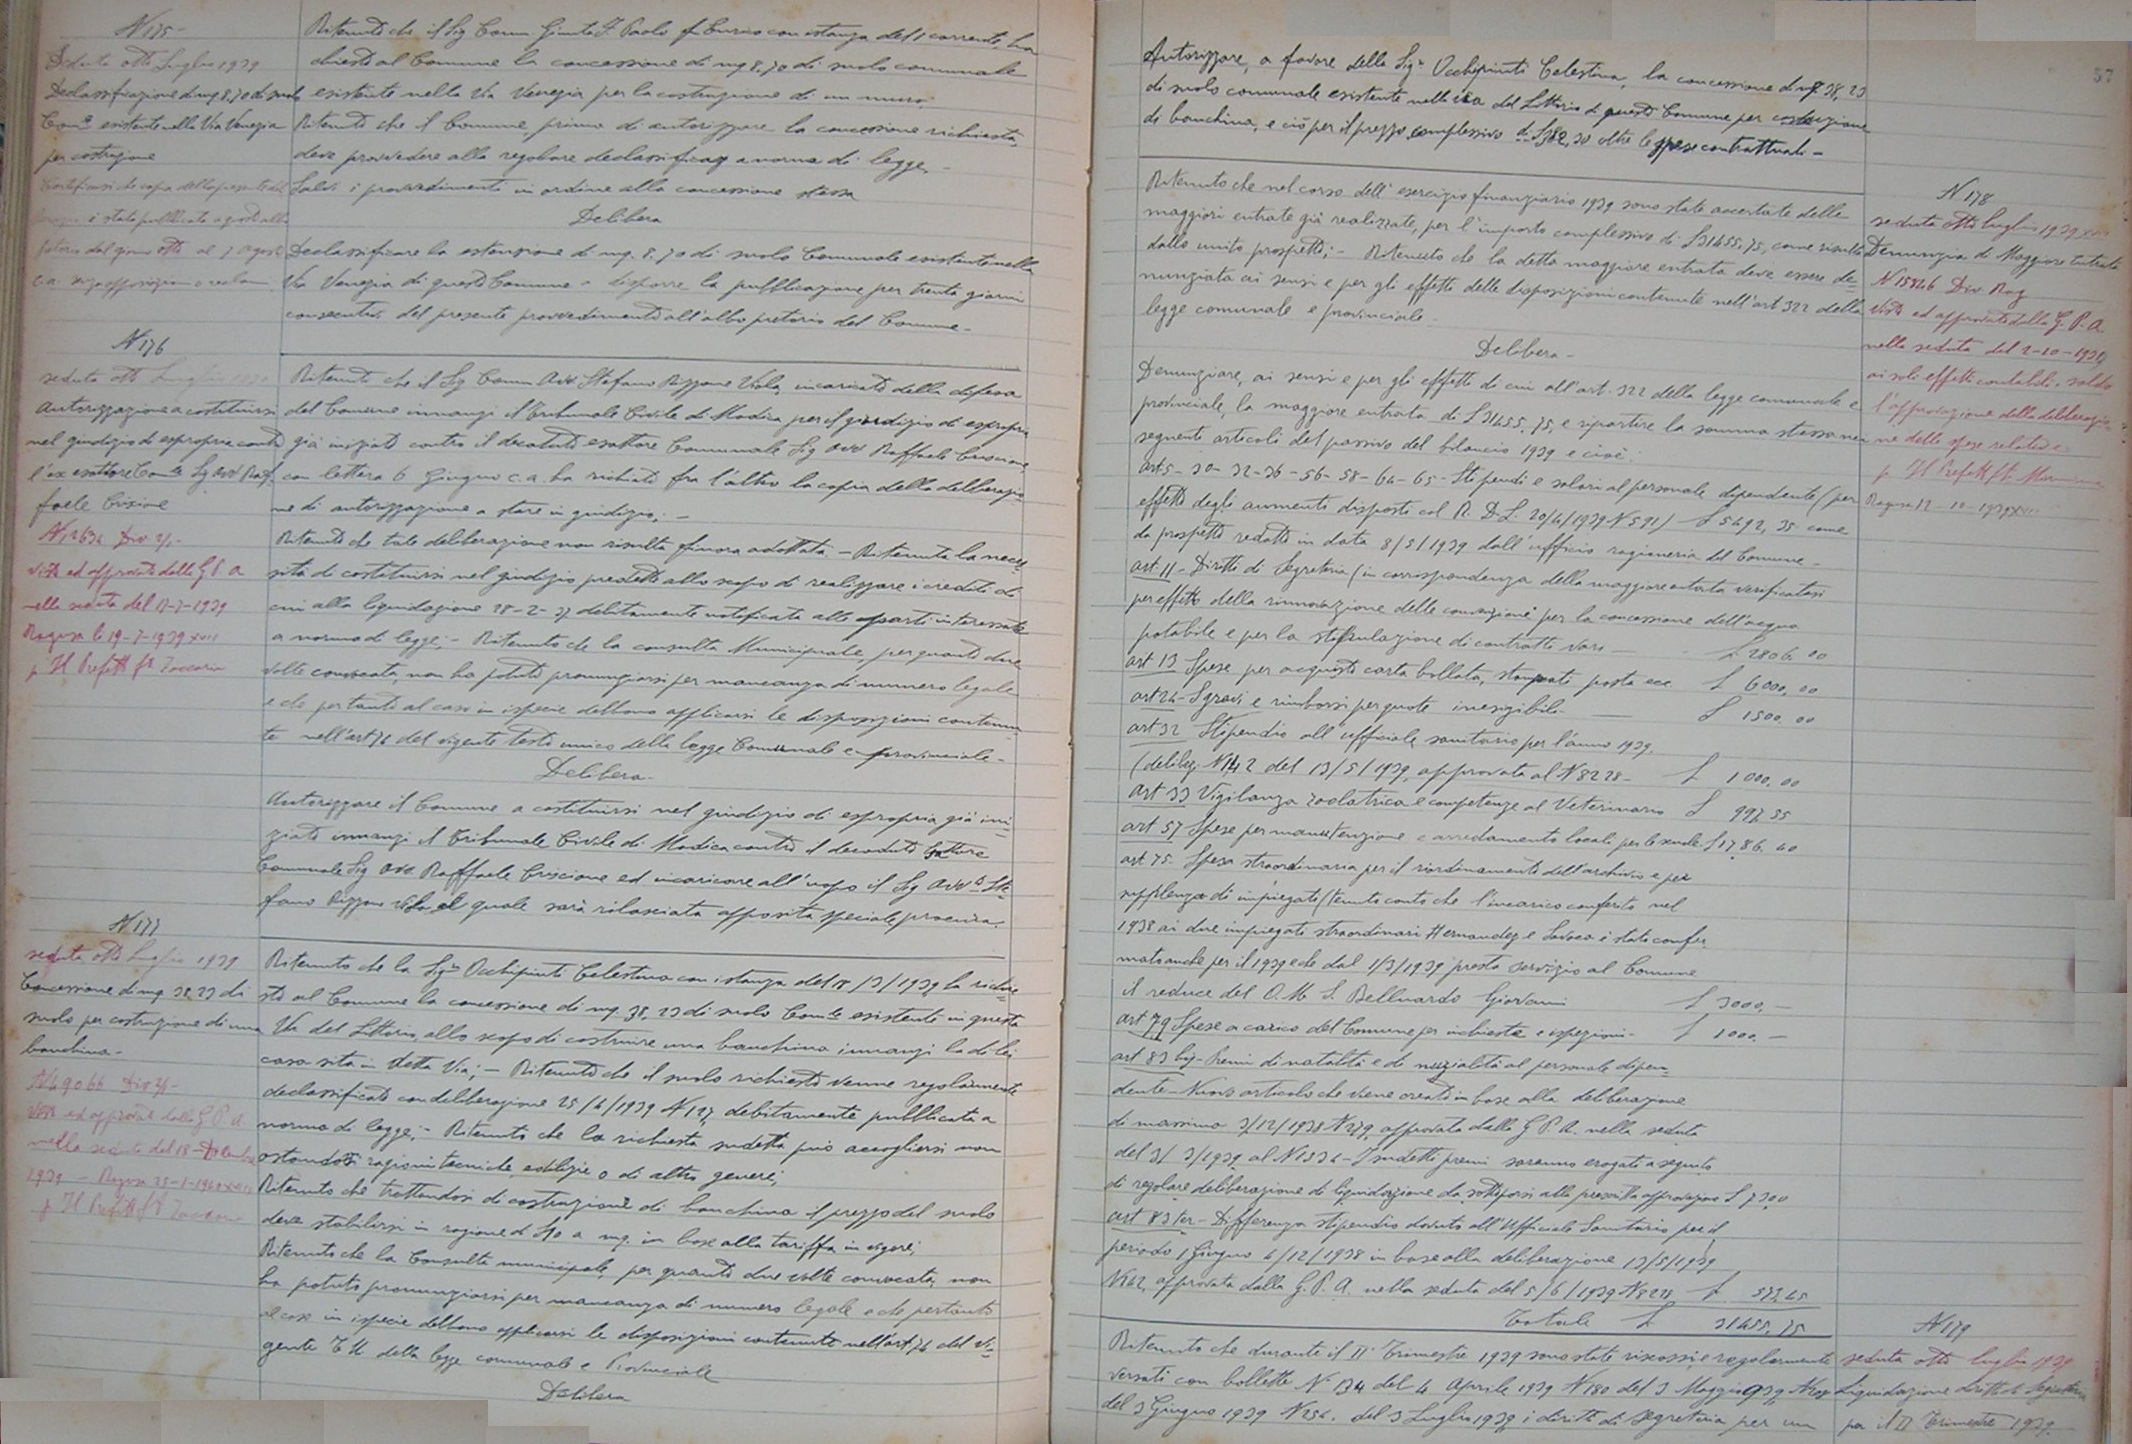 N 175-
Seduta otto Luglio 1939
Declassificazione di mq 8,70 di suolo
Com.le esistente nella Via Venezia
per costruzione
Certificasi che copia della presente
è stata pubblicata
pretorio dal giorno otto al 7 agosto
c.a. senza opposizioni o reclami
Ritenuto che il Sig Comm Giunta F. Paolo fu Enrico con istanza del 1 corrente, ha
chiesto al Comune la concessione di mq 8,70 di suolo comunale
esistente nella Via Venezia per la costruzione di un muro
Ritenuto che il Comune, prima di autorizzare la concessione richiesta,
deve provvedere alla regolare declassificaz a norma di legge,-
Salvi i provvedimenti in ordine alla concessione stessa
Delibera
Declassificare la estensione di mq. 8,70 di suolo Comunale esistente nella
Via Venezia di questo Comune e disporre la pubblicazione per trenta giorni
consecutivi del presente provvedimento all'albo pretorio del Comune-
N 176
seduta otto Luglio 1939
Autorizzazione a costituirsi
nel giudizio di espropria contro
l'ex esattore Com.le Sig Avv Raf
faele Criscione
N. 12634 Div 2/1-
Vista ed approvata dalla G P. A
nella seduta del 17-7-1939
Ragusa lì 19-7-1939 XVII
p Il Prefetto fto Zaccaria
Ritenuto che il Sig Comm Avv Stefano Rizzone Viola, incaricato della difesa
del Comune innanzi il Tribunale Civile di Modica per il giudizio di espropria
già iniziato contro il decaduto esattore Comunale Sig Avv Raffaele Criscione,
con lettera 6 Giugno c.a. ha richiesto fra l'altro la copia della deliberazio
ne di autorizzazione a stare in giudizio; -
Ritenuto che tale deliberazione non risulta finora adottata - Ritenuta la neces
sità di costituirsi nel giudizio predetto allo scopo di realizzare i crediti di
cui alla liquidazione 28-2-37 debitamente notificata alle parti interessate
a norma di legge; - Ritenuto che la consulta Municipale, per quanto due
volte convocata, non ha potuto pronunziarsi per mancanza di numero legale
e che pertanto al caso in ispecie debbono applicarsi le disposizioni contenu
te nell'art 76 del vigente testo unico della legge Comunale e provinciale-
Delibera-
Autorizzare il Comune a costituirsi nel giudizio di espropria già ini-
ziato innanzi il Tribunale Civile di Modica contro il decaduto Esattore
Comunale Sig Avv. Raffaele Criscione ed incaricare all'uopo il Sig Avv.to Ste
fano Rizzone Viola, al quale sarà rilasciata apposita speciale procura.
N 177
seduta otto Luglio 1939
Concessione di mq 38,23 di
suolo per costruzione di una
banchina-
N 49066 Div 2/1-
Vista ed approvata dalla G P A
nella seduta del 18-Dicembre
1939 - Ragusa 25-1-1940 XVIII
p Il Prefetto fto Zaccaria
Ritenuto che la Sig.ra Occhipinti Celestina con istanza del 18/3/1939 ha richie
sto al Comune la concessione di mq. 38,23 di suolo Com.le esistente in questa
Via del Littorio, allo scopo di costruire una banchina innanzi la di lei
casa sita in detta Via; - Ritenuto che il suolo richiesto venne regolarmente
declassificato con deliberazione 25/4/1939 N 127, debitamente pubblicata a
norma di legge;- Ritenuto che la richiesta sudetta può accogliersi non
ostandovi ragioni tecniche, edilizie o di altro genere;
Ritenuto che trattandosi di costruzione di banchina il prezzo del suolo
deve stabilirsi in ragione di L 10 a mq. in base alla tariffa in vigore;
Ritenuto che la Consulta municipale, per quanto due volte convocata, non
ha potuto pronunziarsi per mancanza di numero legale e che pertanto
al caso in ispecie debbono applicarsi le disposizioni contenute nell'art 76 del vi-
gente T U della legge comunale e Provinciale
Delibera
57
Autorizzare, a favore della Sig.ra Occhipinti Celestina, la concessione di mq. 38,23
di suolo comunale esistente nella via del Littorio di questo Comune per costruzione
di banchina, e ciò per il prezzo complessivo di L 382,30 oltre le spese contrattuali -
Ritenuto che nel corso dell'esercizio finanziario 1939 sono state accertate delle
maggiori entrate già realizzate, per l'importo complessivo di L 31455,75, come risulta
dallo unito prospetto; - Ritenuto che la detta maggiore entrata deve essere de-
nunziata ai sensi e per gli effetti delle disposizioni contenute nell'art 322 della
legge comunale e provinciale-
Delibera-
Denunziare, ai sensi e per gli effetti di cui all'art. 322 della legge comunale e
provinciale, la maggiore entrata di L 31455,75, e ripartire la somma stessa nei
seguenti articoli del passivo del bilancio 1939 e cioè:
Art 5- 30- 32-36-56-58-64-65- Stipendi e salari al personale dipendente (per
effetto degli aumenti disposti col R. D. L. 20/4/1939 N 591) L 5492,35 come
da prospetto redatto in data 8/5/1939 dall'ufficio ragioneria del Comune-
art 11 - Diritti di Segreteria (in corrispondenza della maggiore entrata verificatasi
per effetto della rinnovazione delle convenzioni per la concessione dell'acqua
potabile e per la stipulazione di contratti vari - L 2806.00
art 13 Spese per acquisto carta bollata, stampati posta ecc L 6000,00
art 24- Sgravi e rimborsi per quote inesigibili- L 1500,00
art 32 Stipendio all'ufficiale sanitario per l'anno 1939.
(delibez. N 142 del 13/5/1939, approvata al N 8228- L 1000,00
art 33 Vigilanza zooiatrica e competenze al Veterinario L 997,35
art 57 Spese per manutenzione e arredamento locali per le scuole L 1786.60
art 75. Spesa straordinaria per il riordinamento dell'archivio e per
supplenza di impiegati (tenuto conto che l'incarico conferito nel
1938 ai due impiegati straordinari Hernandez e Savoca è stato confer
mato anche per il 1939 e che dal 1/3/1939 presta servizio al Comune
il reduce dell' O. M. S. Belluardo Giovanni L 3000,-
art 79 Spese a carico del Comune per inchieste e ispezioni- L 1000,-
art 83 bis- Premi di natalità e di nuzialità al personale dipen-
dente - Nuovo articolo che viene creato in base alla deliberazione
di massima 3/12/1938 N 279, approvata dalla G P.A. nella seduta
del 3/3/1939 al N 1534- I sudetti premi saranno erogati a seguito
di regolare deliberazione di liquidazione da sottoporsi alla prescritta approvazione L 7300
art 83 ter- Differenza stipendio dovuto all'Ufficiale Sanitario per il
periodo 1 Giugno 4/12/1938 in base alla deliberazione 13/5/1939
N 142, approvata dalla G. P. A. nella seduta del 5/6/1939 N 8228 L 573,45
Totale L 31455,75
Ritenuto che durante il II° Trimestre 1939 sono state riscossi e regolarmente
versati con bollette N 134 del 4 Aprile 1939 N 180 del 3 Maggio 939, N 209
del 3 Giugno 1939 N 254. del 3 Luglio 1939, i diritti di segreteria per un
N 178
seduta otto luglio 1939 XVII
Denunzia di Maggiore Entrata
N 15826 Div. Rag
Vista ed approvata dalla G. P. A.
nella seduta del 2-10-1939,
ai soli effetti contabili, salvo
l'approvazione delle deliberazio-
ne delle spese relative
p Il Prefetto fto
Ragusa 12-10-1939 XVII
N 179
seduta otto luglio 1939
Liquidazione diritti di Segreteria
per il II Trimestre 1939.